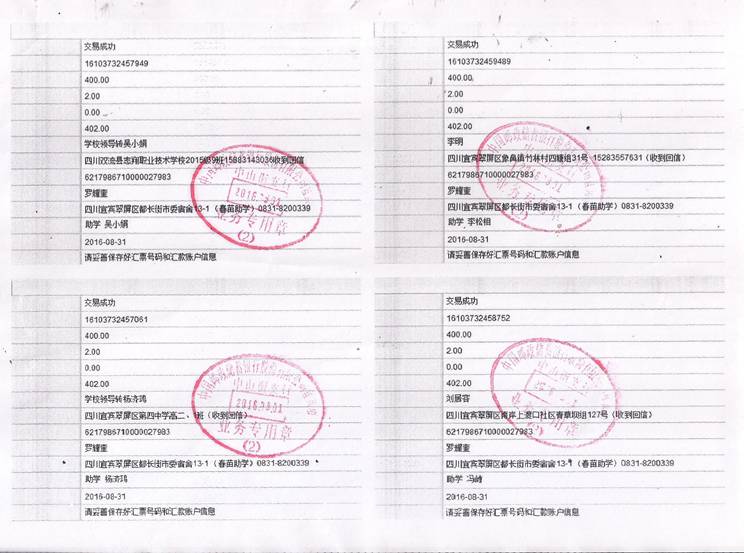 交易成功
16103732457949
400.00
2.00
0.00
402.00
学校领导转吴小娟
四川双流县志翔职业技术学校2015级9班15883143036收到回信
6217986710000027983
罗耀奎
四川宜宾翠屏区都长街市委宿舍13-1（春苗助学）0831-8200339
助学 吴小娟
2016-08-31
请妥善保存好汇票号码和汇款账户信息
业务专用章
(2)
交易成功
16103732459489
400.00
2.00
0.00
402.00
李明
四川宜宾翠屏区象鼻镇竹林村四塘组31号 15283557631（收到回信）
6217986710000027983
罗耀奎
四川宜宾翠屏区都长街市委宿舍13-1（春苗助学）0831-8200339
助学 李松柏
2016-08-31
请妥善保存好汇票号码和汇款账户信息
业务专用章
(2)
交易成功
16103732457061
400.00
2.00
0.00
402.00
学校领导转杨济鸿
四川宜宾翠屏区第四中学高二、 班（收到回信）
6217986710000027983
罗耀奎
四川宜宾翠屏区都长街市委宿舍13-1（春苗助学）0831-8200339
助学 杨济鸿
2016-08-31
请妥善保存好汇票号码和汇款账户信息
2016.08.31
业务专用章
(2)
交易成功
16103732458752
400.00
2.00
0.00
402.00
刘居容
四川宜宾翠屏区南岸上渡口社区青草坝组127号（收到回信）
6217986710000027983
罗耀奎
四川宜宾翠屏区都长街市委宿舍13-1（春苗助学）0831-8200339
助学 冯峰
2016-08-31
请妥善保存好汇票号码和汇款账户信息